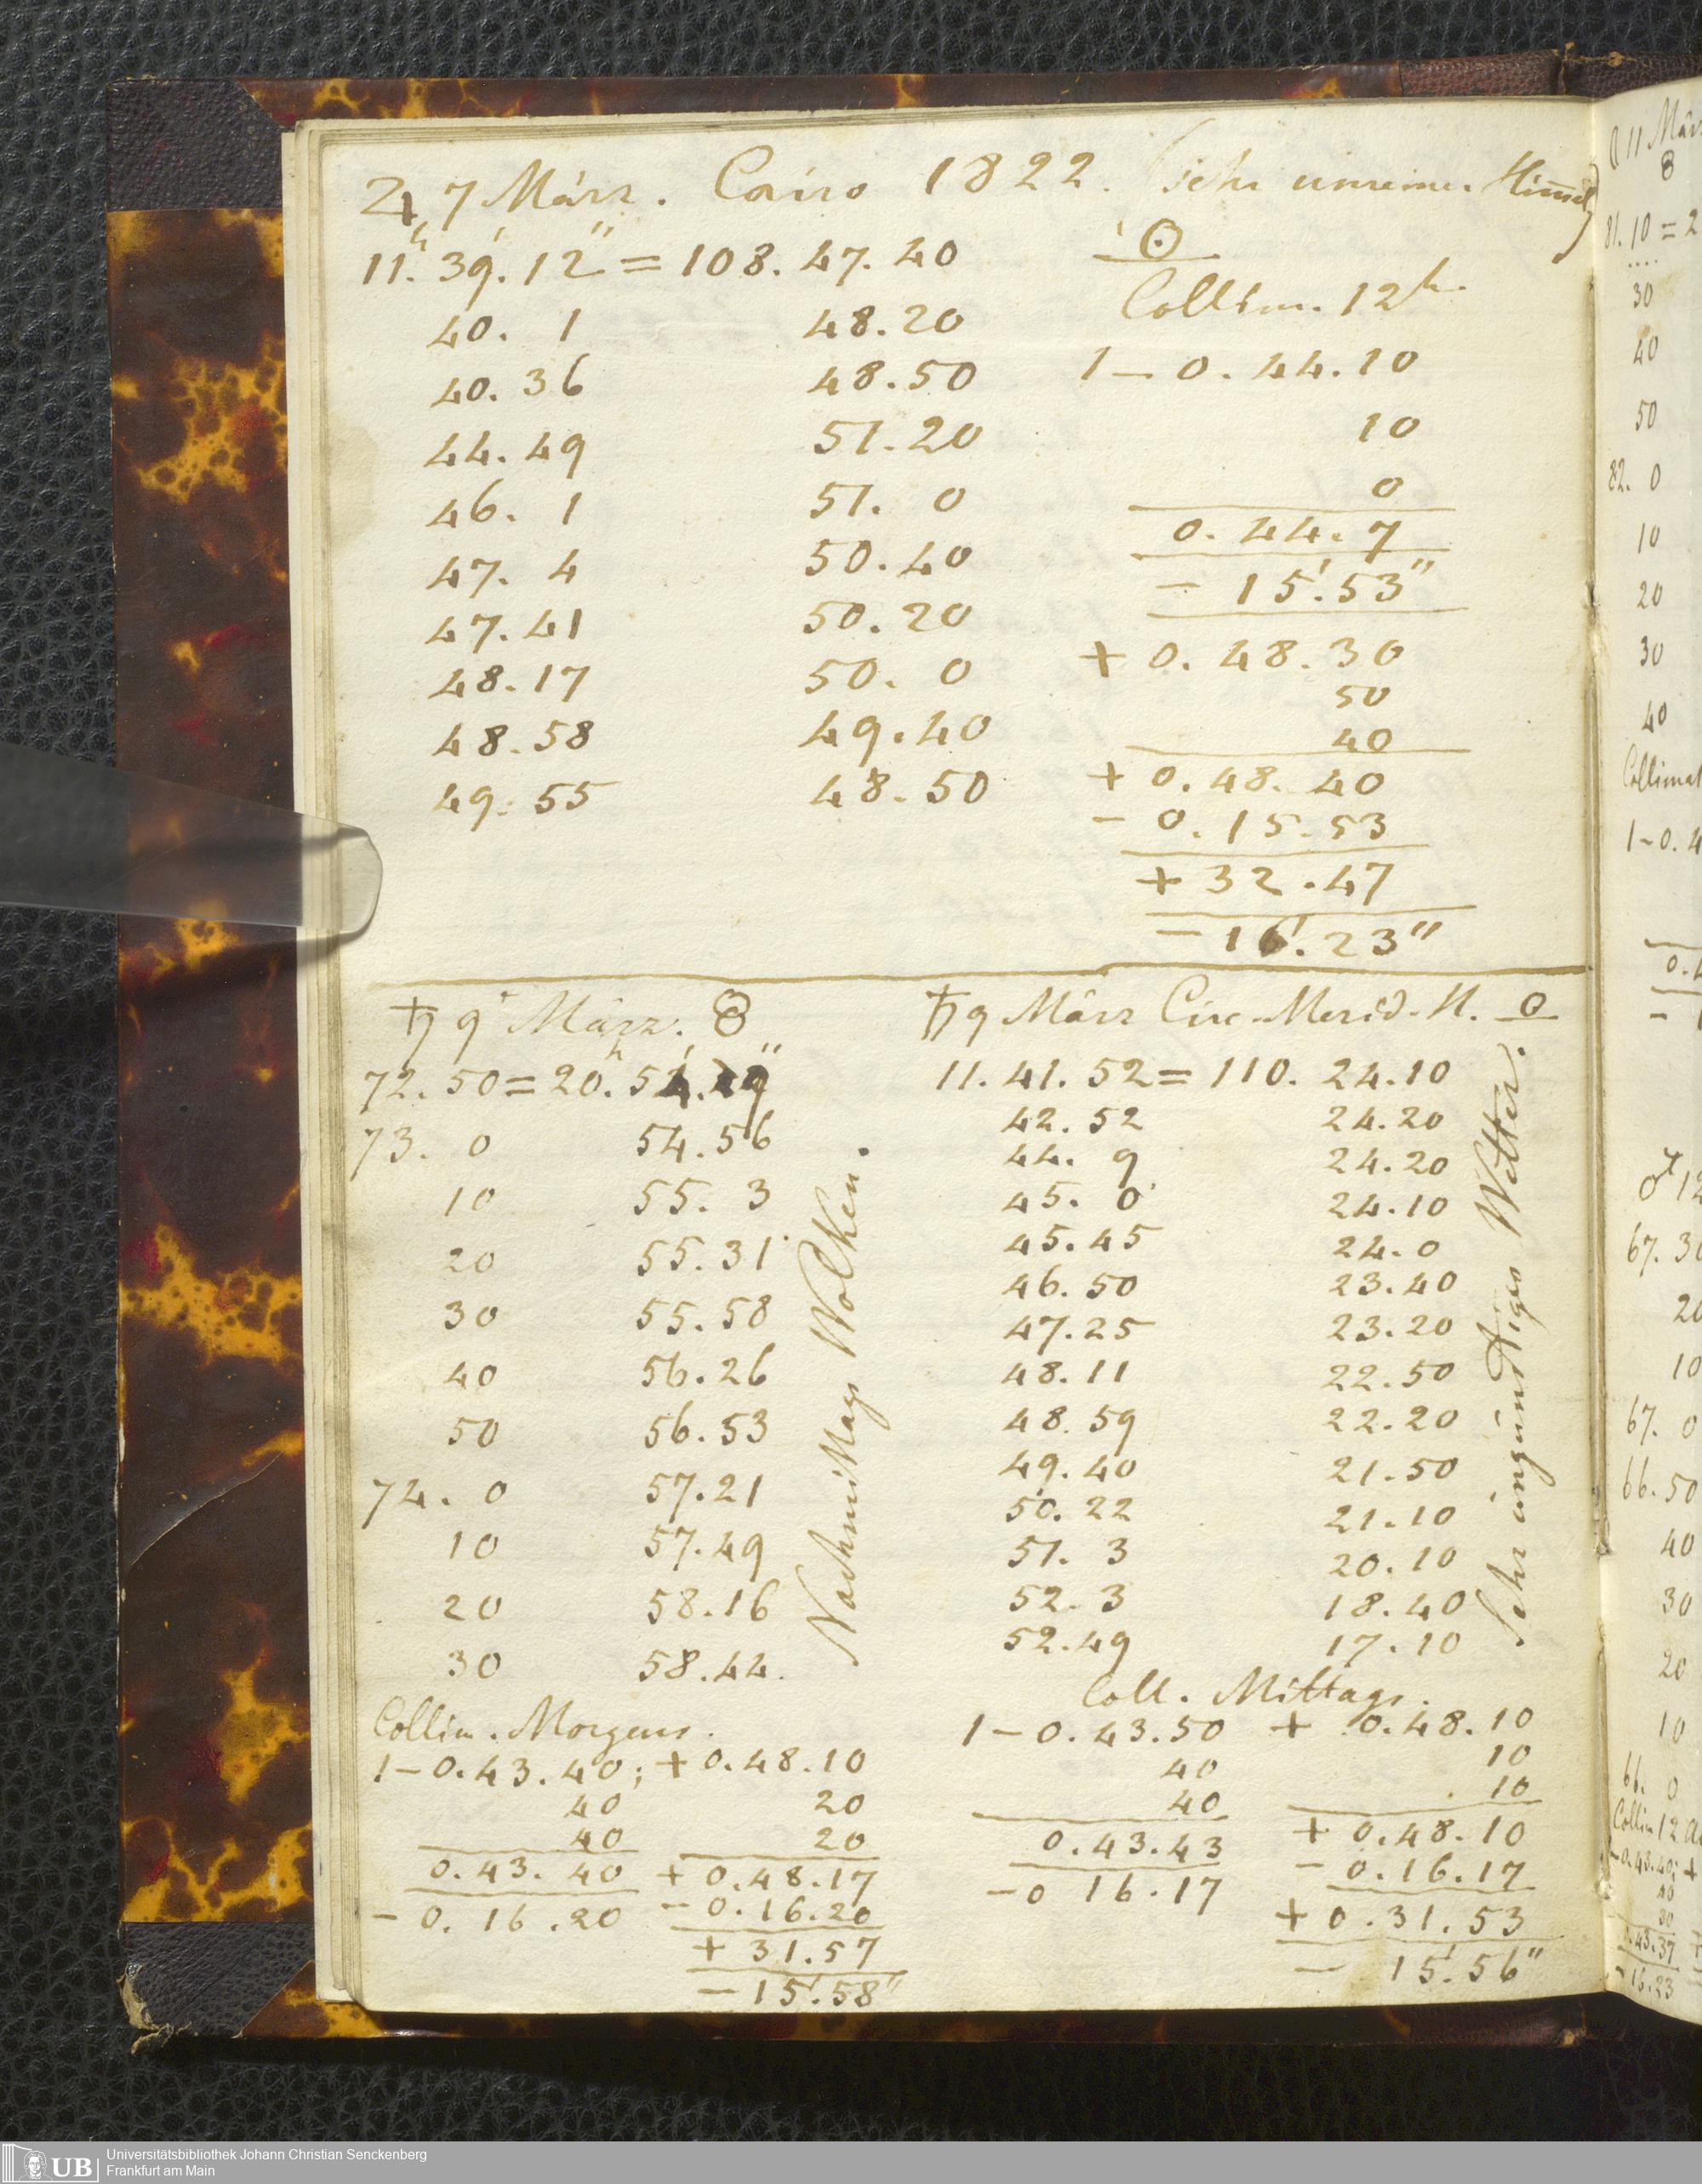 ♃ 7 März. Cairo 1822. (sehr unreiner Him̄el)
11.h 39.' 12" = 108. 47. 40
40. 1 48.20
40. 36 48.50
44. 49 51.20
46. 1 51. 0
47. 4 50.40
47. 41 50.20
48. 17 50. 0
48. 58 49.40
49. 55 48.50
☉
Collim. 12h.
1 – 0. 44. 10
10
0
0. 44. 7
– 15'. 53"
+ 0. 48. 30
50
40
+ 0. 48. 40
– 0. 15. 53
+ 32. 47
– 16'. 23"
♄ 9 März. 8
72. 50 = 20.h 54.' 29"
73. 0 54. 56
10 55. 3
20 55. 31
30 55. 58
40 56. 26
50 56. 53
74. 0 57. 21
10 57. 49
20 58. 16
30 58. 44.
Nachmittags Wolken.
Collim. Morgens.
1 – 0. 43. 40; + 0. 48. 10
40 20
40 20
0. 43. 40 + 0. 48. 17
– 0. 16. 20 – 0. 16. 20
+ 31. 57
– 15'. 58"
♄ 9 März Circ. Merid. H. O
11. 41. 52 = 110. 24. 10
42. 52 24. 20
44. 9 24. 20
45. 0 24. 10
45. 45 24. 0
46. 50 23. 40
47. 25 23. 20
48. 11 22. 50
48. 59 22. 20
49. 40 21. 50
50. 22 21. 10
51. 3 20. 10
52. 3 18. 40
52. 49 17. 10
Sehr ungünstiges Wetter.
Coll. Mittags.
1 – 0. 43. 50 + 0. 48. 10
40 10
40 10
0. 43. 43 + 0. 48. 10
– 0 16. 17 – 0. 16. 17
+ 0. 31. 53
– 15'. 56"
11 Mär
8
81. 10 = 2
30
40
50
82. 0
10
20
30
40
Collimat
1 – 0. 4
0. 4
♂ 12
67. 30
20
10
67. 0
66. 50
40
30
20
10
66. 0
Collim 12
– 0. 43. 40; +
40
30
0. 43. 37
– 16. 23
UB
Universitätsbibliothek Johann Christian Senckenberg
Frankfurt am Main